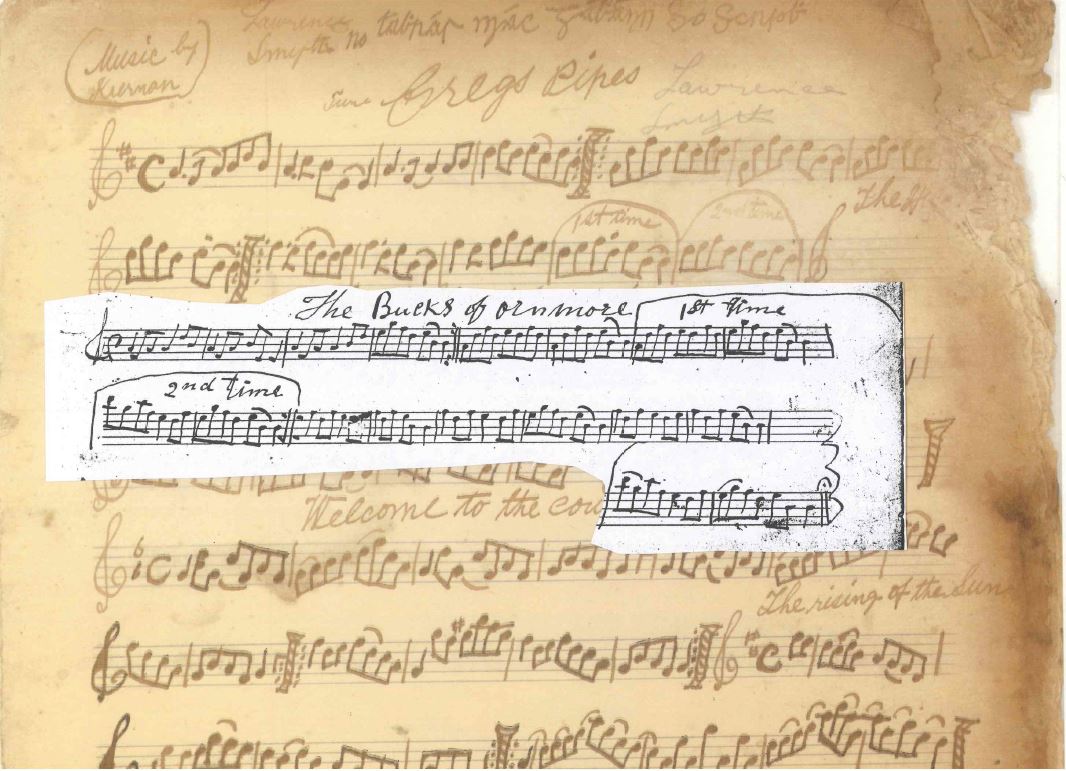 Lawrence
Music by
Kiernan
Smyth no
tune Gregs Pipes
Lawrence
Smyth
The
1st time
2nd time
The Bucks of ornmore
1st time
2nd time
Welcome to the cou
The rising of the Sun